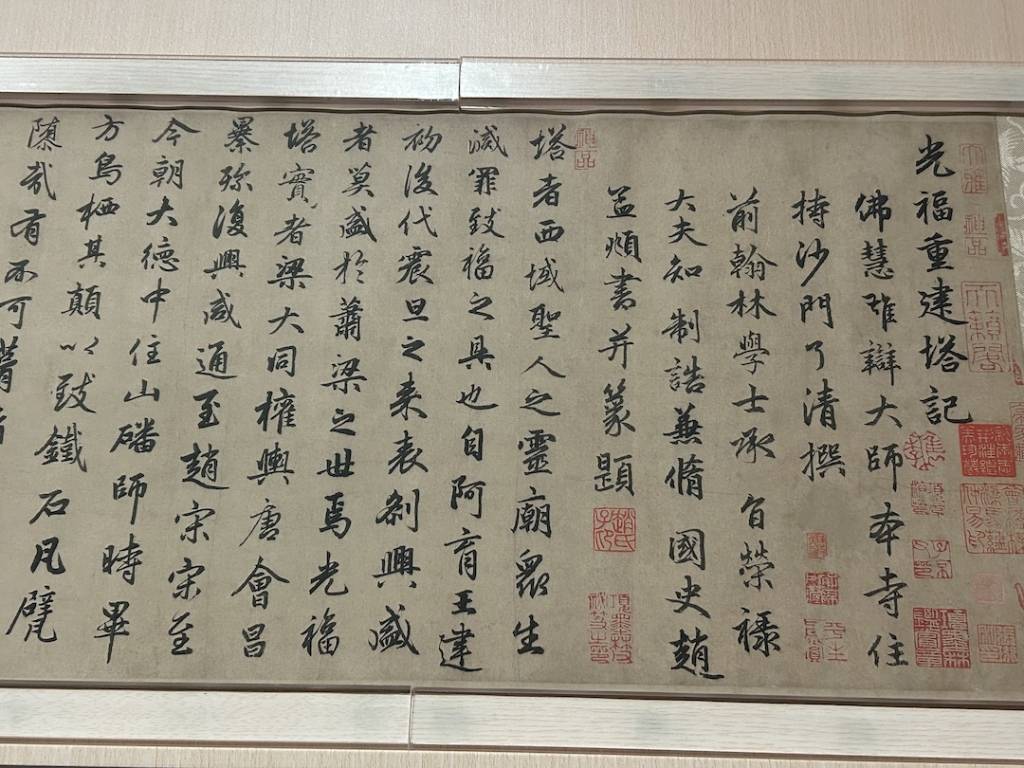 光福重建塔記
佛慧雄辯大師本寺住
持沙門了清撰
前翰林學士承旨榮祿
大夫知制誥兼脩國史趙
孟頫書并篆題
塔者西域聖人之靈廟眾生
滅罪致福之具也自阿育王建
初後代震旦之來表剏興盛
者莫盛於蕭梁之世焉光福
塔實者梁大同權輿唐會昌
暴殄復興咸通至趙宋宋至
今朝大德中住山磻師時畢
方鳥栖其顛以致鐵石凡甓
隳哉有不可